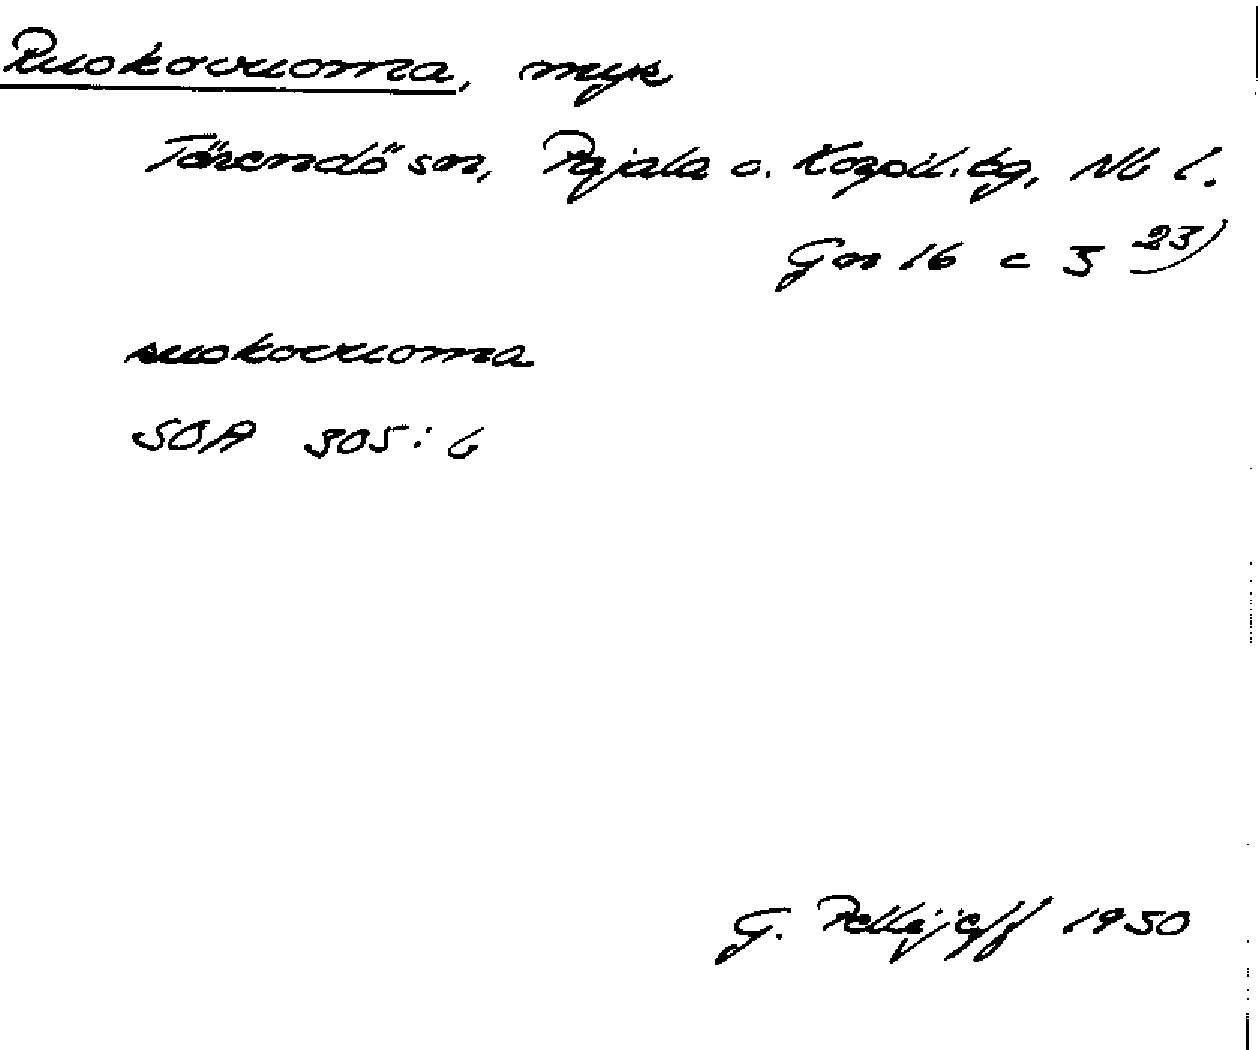 Ruokovuoma, myr
Tärendö sn, Pajala o. Korpil. tg, Nb l.
Gn 16 c 3 23)
ruokovuoma
SOA 305:6
G. Pellijeff 1950